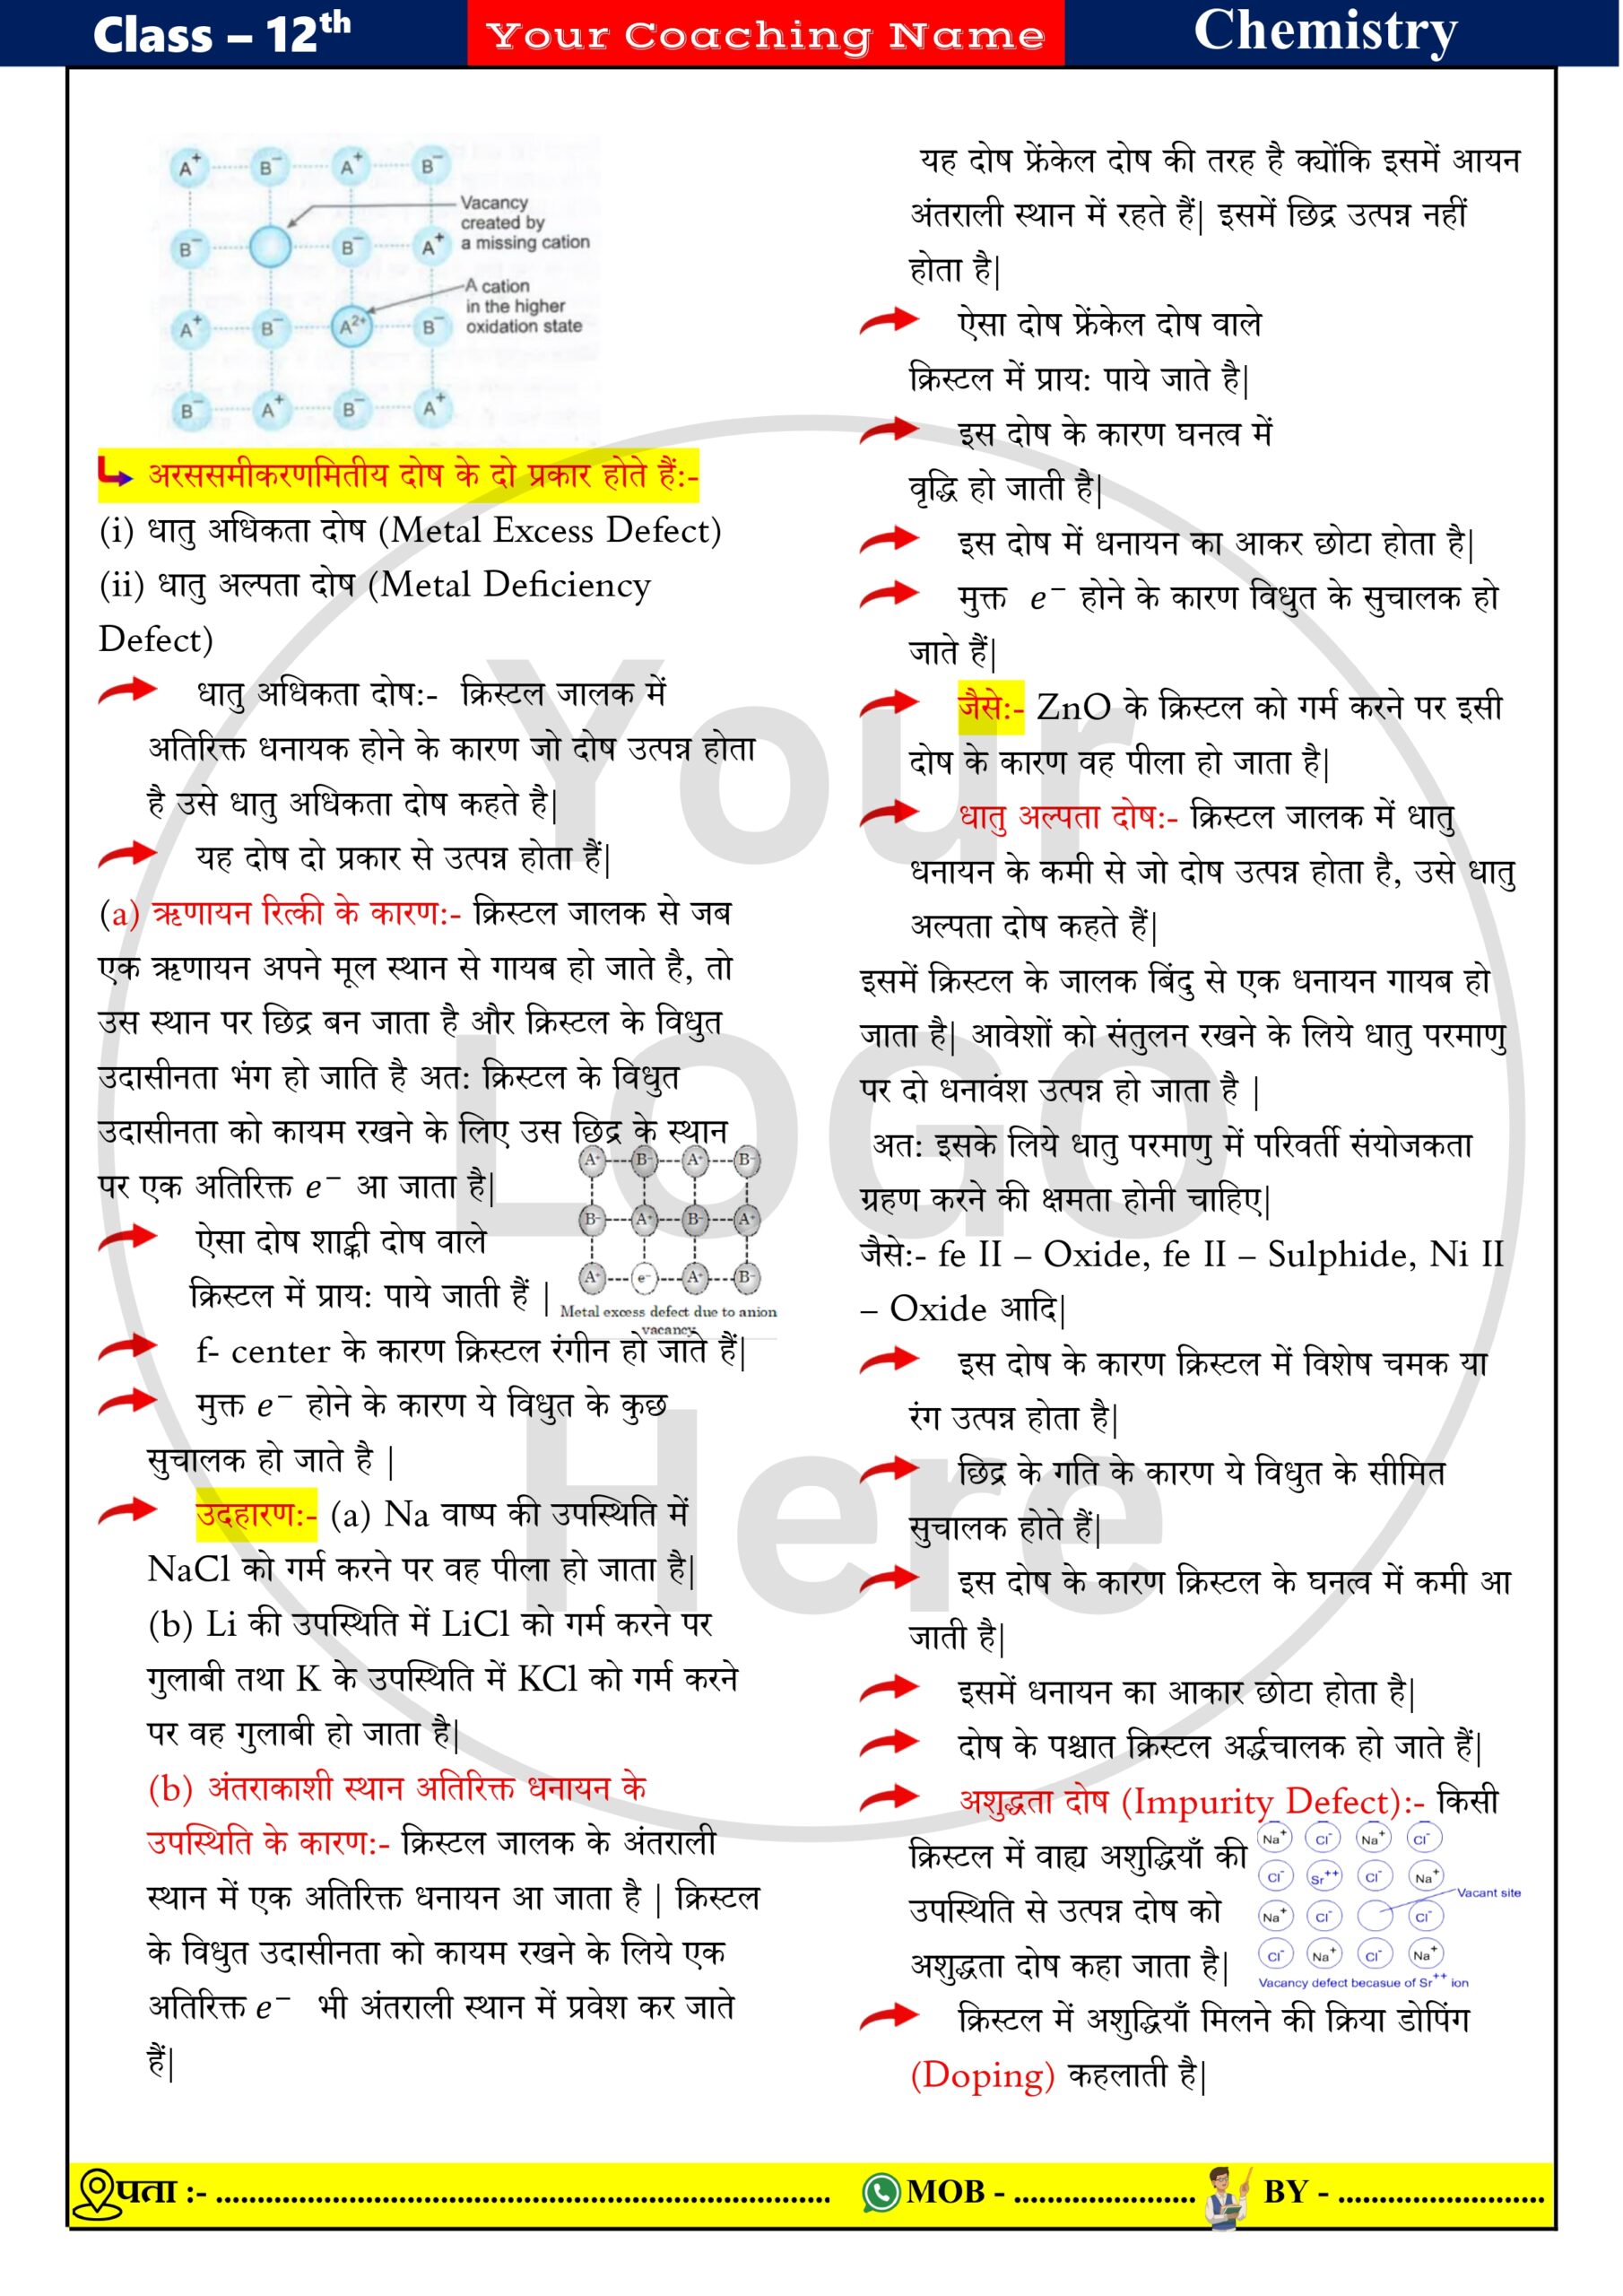 Class – 12th
Your Coaching Name
Chemistry
A+ B− A+ B−
Vacancy
created by
a missing cation
B− B− A+
A cation
in the higher
oxidation state
A+ B− A2+ B−
B− A+ B− A+
अरससमीकरणमितीय दोष के दो प्रकार होते हैं:-
(i) धातु अधिकता दोष (Metal Excess Defect)
(ii) धातु अल्पता दोष (Metal Deficiency
Defect)
धातु अधिकता दोष:- क्रिस्टल जालक में
अतिरिक्त धनायक होने के कारण जो दोष उत्पन्न होता
है उसे धातु अधिकता दोष कहते है|
यह दोष दो प्रकार से उत्पन्न होता हैं|
(a) ऋणायन रित्की के कारण:- क्रिस्टल जालक से जब
एक ऋणायन अपने मूल स्थान से गायब हो जाते है, तो
उस स्थान पर छिद्र बन जाता है और क्रिस्टल के विधुत
उदासीनता भंग हो जाति है अत: क्रिस्टल के विधुत
उदासीनता को कायम रखने के लिए उस छिद्र के स्थान
पर एक अतिरिक्त e− आ जाता है|
ऐसा दोष शाट्की दोष वाले
क्रिस्टल में प्राय: पाये जाती हैं |
A+ B- A+ B-
B- A+ B- A+
A+ e− A+ B-
Metal excess defect due to anion
vacancy
f- center के कारण क्रिस्टल रंगीन हो जाते हैं|
मुक्त e− होने के कारण ये विधुत के कुछ
सुचालक हो जाते है |
उदहारण:- (a) Na वाष्प की उपस्थिति में
NaCl को गर्म करने पर वह पीला हो जाता है|
(b) Li की उपस्थिति में LiCl को गर्म करने पर
गुलाबी तथा K के उपस्थिति में KCl को गर्म करने
पर वह गुलाबी हो जाता है|
(b) अंतराकाशी स्थान अतिरिक्त धनायन के
उपस्थिति के कारण:- क्रिस्टल जालक के अंतराली
स्थान में एक अतिरिक्त धनायन आ जाता है | क्रिस्टल
के विधुत उदासीनता को कायम रखने के लिये एक
अतिरिक्त e− भी अंतराली स्थान में प्रवेश कर जाते
हैं|
यह दोष फ्रेंकेल दोष की तरह है क्योंकि इसमें आयन
अंतराली स्थान में रहते हैं| इसमें छिद्र उत्पन्न नहीं
होता है|
ऐसा दोष फ्रेंकेल दोष वाले
क्रिस्टल में प्राय: पाये जाते है|
इस दोष के कारण घनत्व में
वृद्धि हो जाती है|
इस दोष में धनायन का आकर छोटा होता है|
मुक्त e− होने के कारण विधुत के सुचालक हो
जाते हैं|
जैसे:- ZnO के क्रिस्टल को गर्म करने पर इसी
दोष के कारण वह पीला हो जाता है|
धातु अल्पता दोष:- क्रिस्टल जालक में धातु
धनायन के कमी से जो दोष उत्पन्न होता है, उसे धातु
अल्पता दोष कहते हैं|
इसमें क्रिस्टल के जालक बिंदु से एक धनायन गायब हो
जाता है| आवेशों को संतुलन रखने के लिये धातु परमाणु
पर दो धनावंश उत्पन्न हो जाता है |
अत: इसके लिये धातु परमाणु में परिवर्ती संयोजकता
ग्रहण करने की क्षमता होनी चाहिए|
जैसे:- fe II – Oxide, fe II – Sulphide, Ni II
– Oxide आदि|
इस दोष के कारण क्रिस्टल में विशेष चमक या
रंग उत्पन्न होता है|
छिद्र के गति के कारण ये विधुत के सीमित
सुचालक होते हैं|
इस दोष के कारण क्रिस्टल के घनत्व में कमी आ
जाती है|
इसमें धनायन का आकार छोटा होता है|
दोष के पश्चात क्रिस्टल अर्द्धचालक हो जाते हैं|
अशुद्धता दोष (Impurity Defect):- किसी
क्रिस्टल में वाह्य अशुद्धियाँ की
उपस्थिति से उत्पन्न दोष को
अशुद्धता दोष कहा जाता है|
Na+ Cl- Na+ Cl-
Cl- Sr++ Cl- Na+
Vacant site
Na+ Cl- Cl-
Cl- Na+ Cl- Na+
Vacancy defect becasue of Sr++ ion
क्रिस्टल में अशुद्धियाँ मिलने की क्रिया डोपिंग
(Doping) कहलाती है|
Your
LOGO
Here
पता :- ..........................................................................
MOB - ......................
BY - .........................